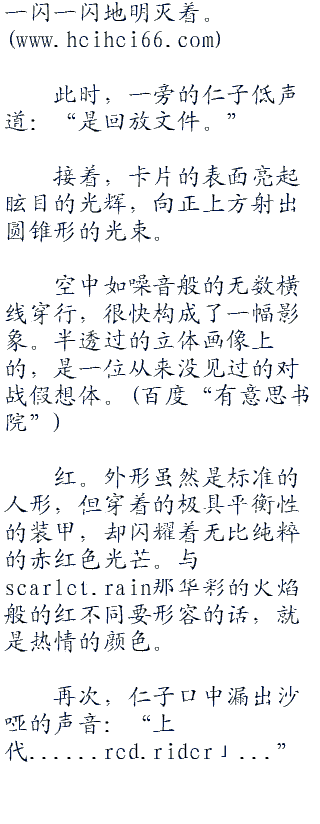 一闪一闪地明灭着。
(www.hcihci66.com)
此时，一旁的仁子低声
道：“是回放文件。”
接着，卡片的表面亮起
眩目的光辉，向正上方射出
圆锥形的光束。
空中如噪音般的无数横
线穿行，很快构成了一幅影
象。半透过的立体画像上
的，是一位从来没见过的对
战假想体。(百度“有意思书
院”)
红。外形虽然是标准的
人形，但穿着的极具平衡性
的装甲，却闪耀着无比纯粹
的赤红色光芒。与
scarlct.rain那华彩的火焰
般的红不同要形容的话，就
是热情的颜色。
再次，仁子口中漏出沙
哑的声音：“上
代......rcd.ridcr」...”